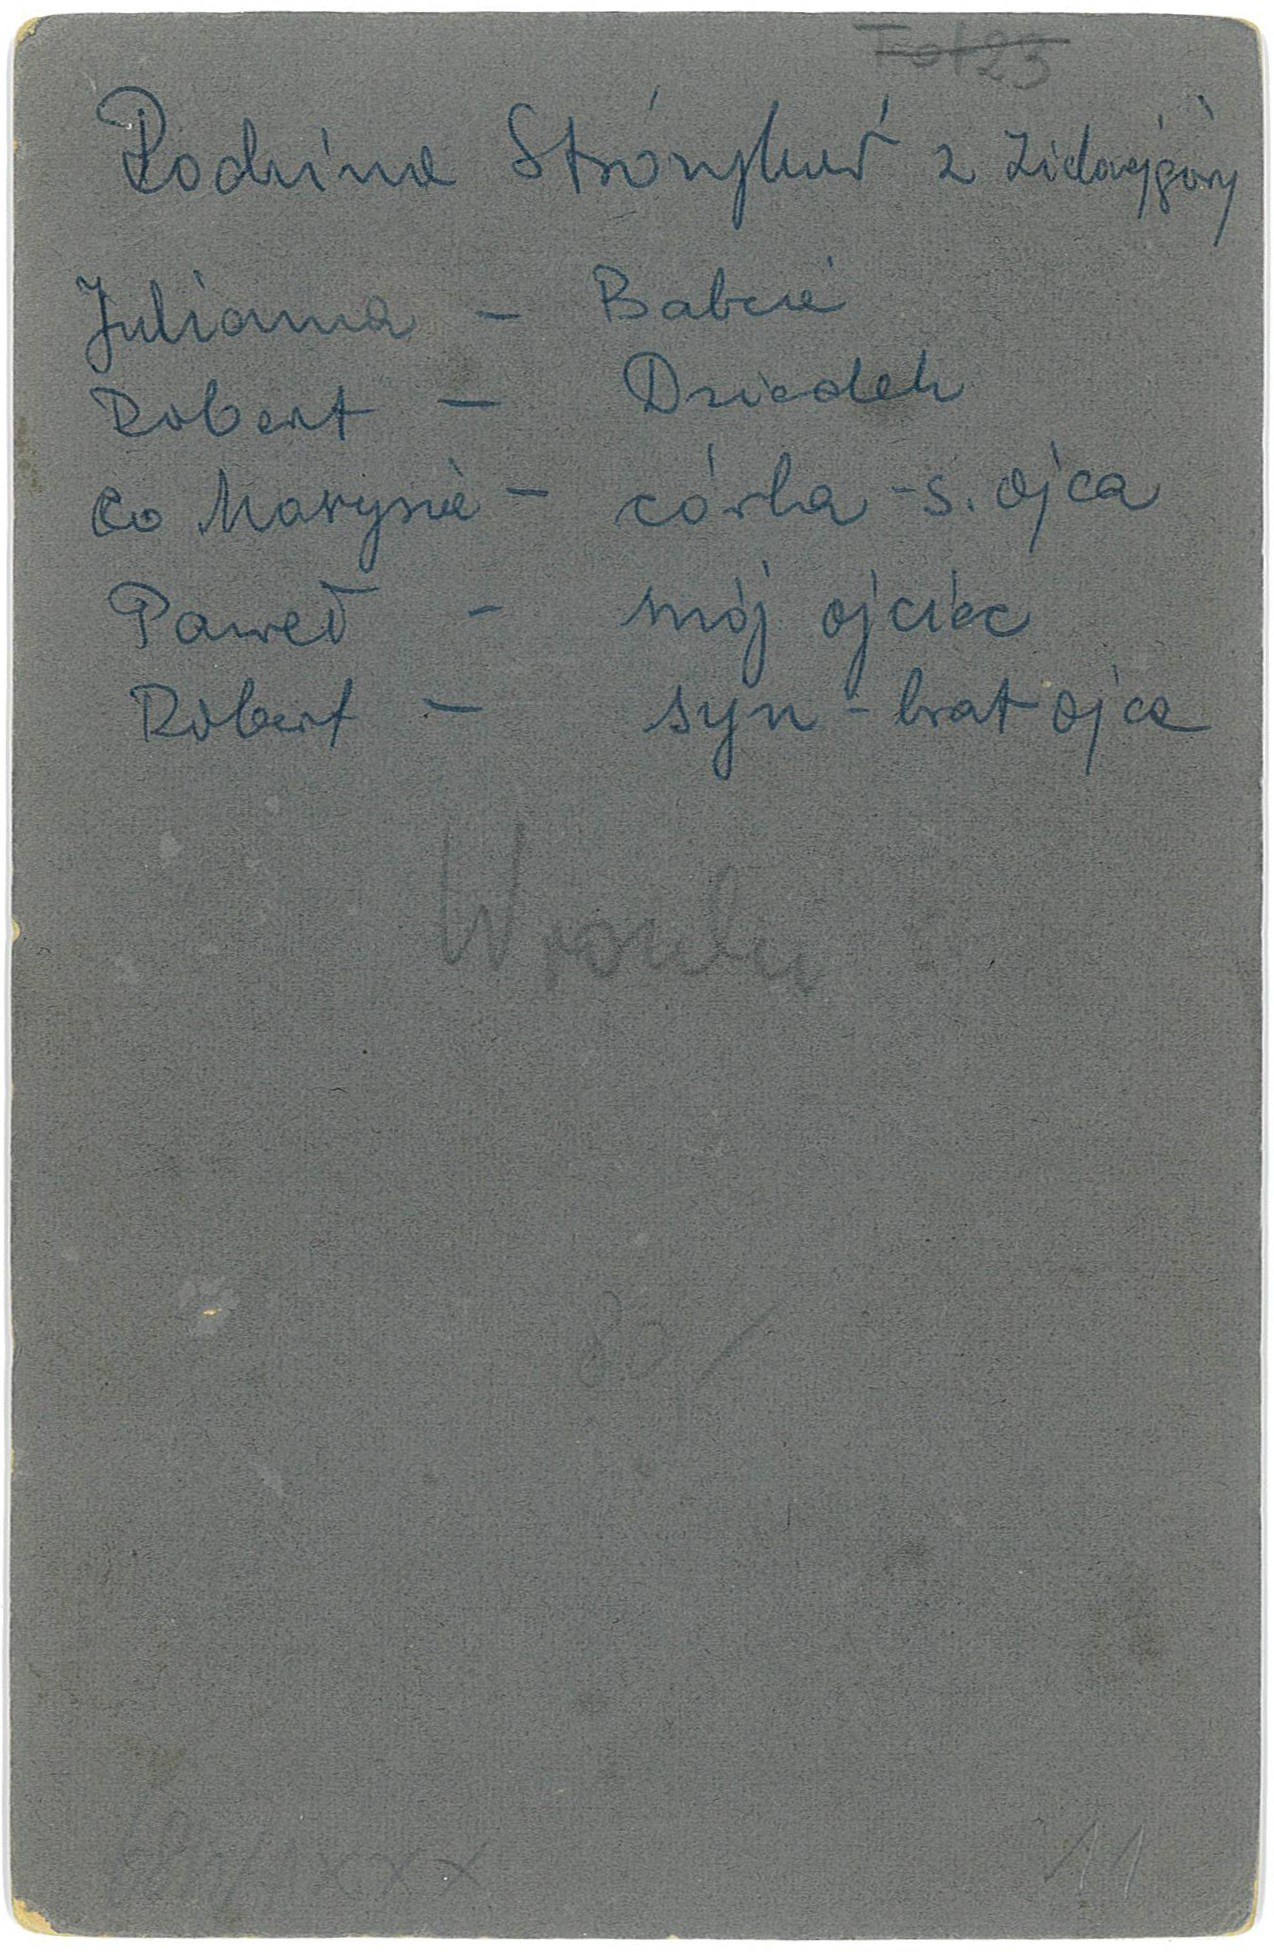 Fot 23
Rodzina Stronykuś z Zidowejgóry
Julianna – Babcia
Robert – Dziadek
Co Marysia – córka – s. ojca
Paweł – mój ojciec
Robert – syn – brat ojca
80/
11